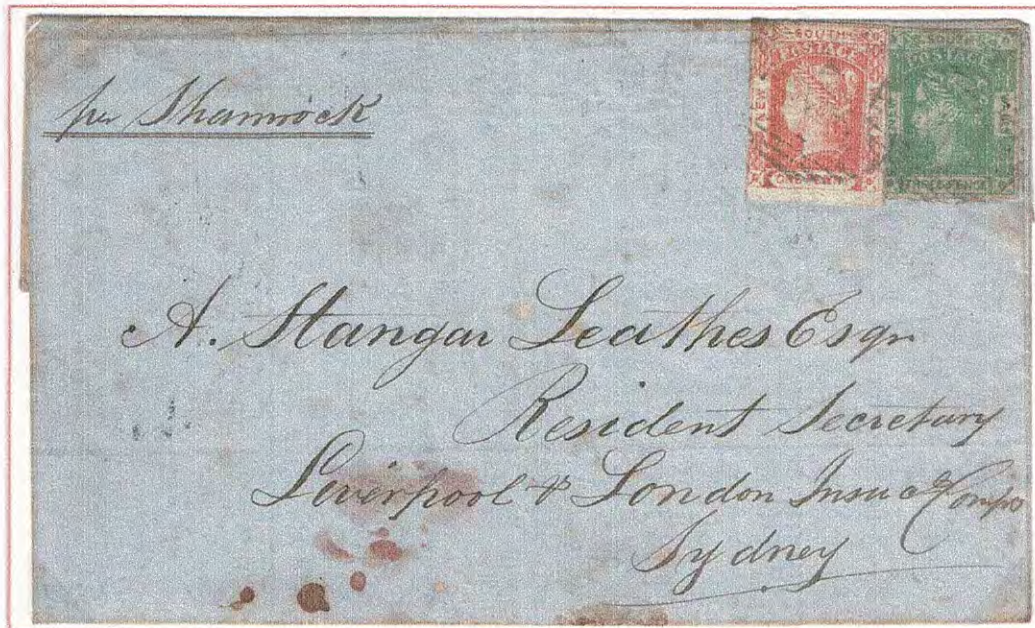 per Shamrock
SOUTH
POSTAGE
NEW
ONE PENNY
POSTAGE
A. Stangar Leathes Esqr
Resident Secretary
Liverpool & London Insuce Compy
Sydney